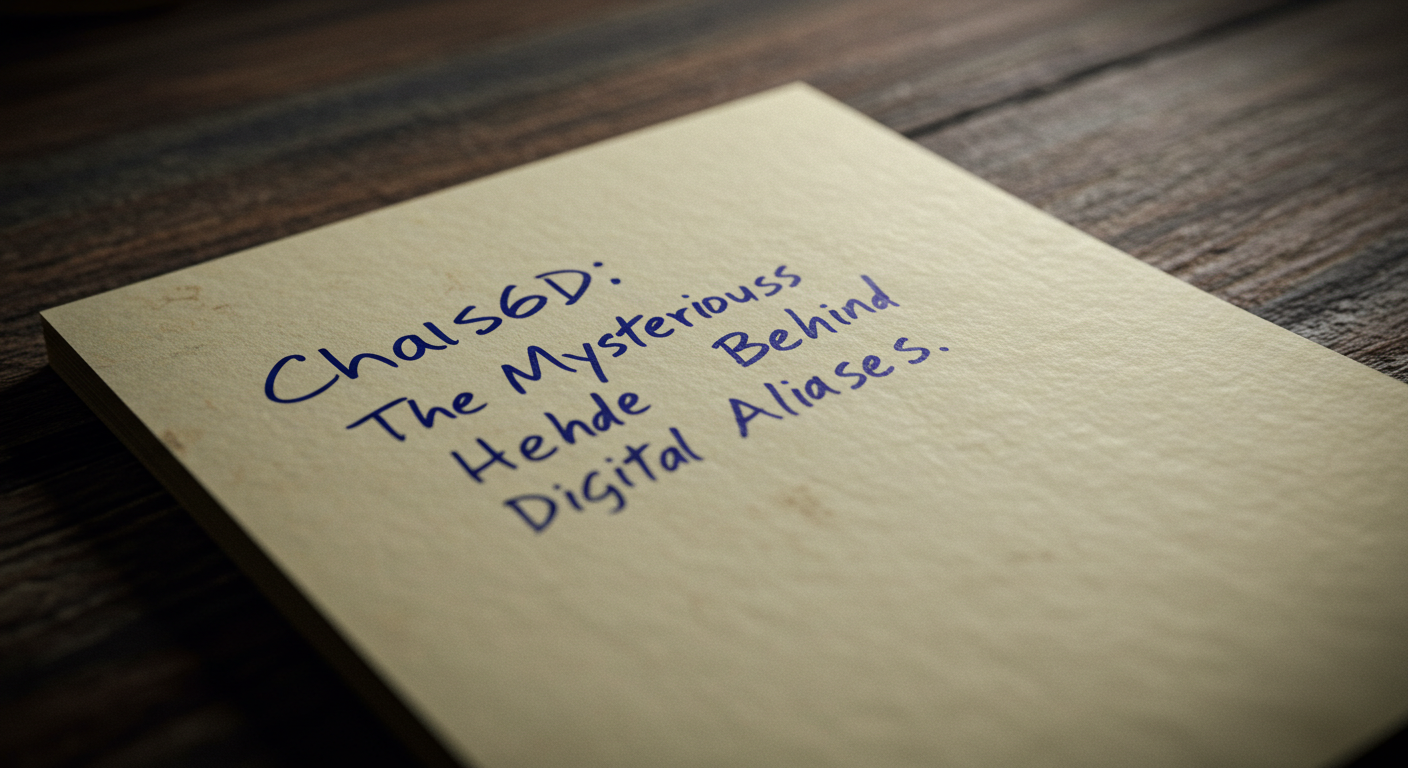 Chals6D:
The Mysteriouss
Hehde Behind
Digital Aliases.